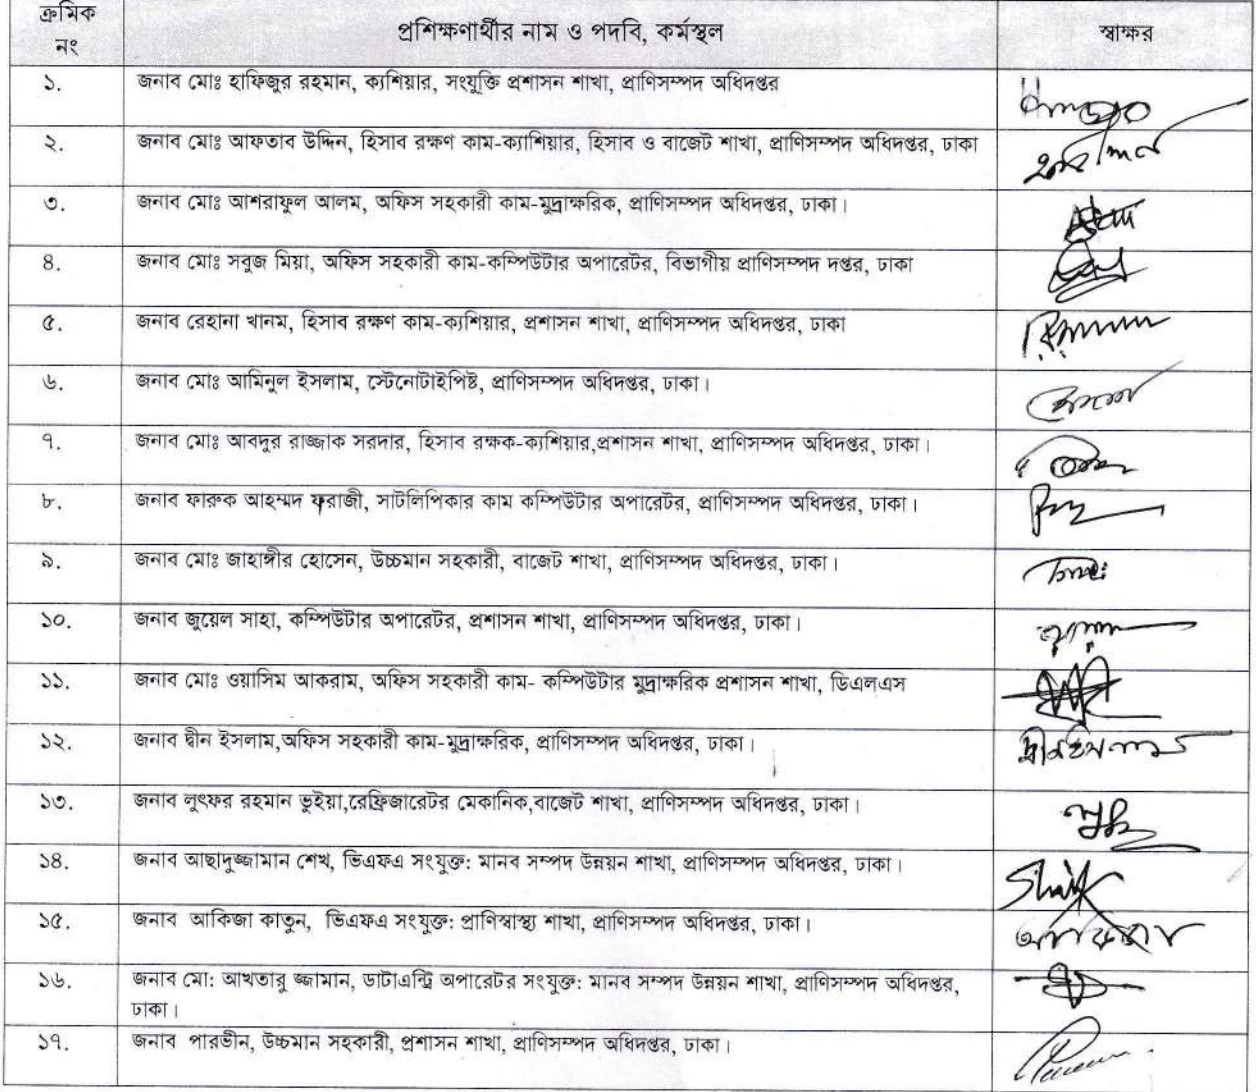 ক্রমিক
নং
প্রশিক্ষণার্থীর নাম ও পদবি, কর্মস্থল
স্বাক্ষর
১. জনাব মোঃ হাফিজুর রহমান, ক্যশিয়ার, সংযুক্তি প্রশাসন শাখা, প্রাণিসম্পদ অধিদপ্তর
২. জনাব মোঃ আফতাব উদ্দিন, হিসাব রক্ষণ কাম-ক্যাশিয়ার, হিসাব ও বাজেট শাখা, প্রাণিসম্পদ অধিদপ্তর, ঢাকা
৩. জনাব মোঃ আশরাফুল আলম, অফিস সহকারী কাম-মুদ্রাক্ষরিক, প্রাণিসম্পদ অধিদপ্তর, ঢাকা।
৪. জনাব মোঃ সবুজ মিয়া, অফিস সহকারী কাম-কম্পিউটার অপারেটর, বিভাগীয় প্রাণিসম্পদ দপ্তর, ঢাকা
৫. জনাব রেহানা খানম, হিসাব রক্ষণ কাম-ক্যশিয়ার, প্রশাসন শাখা, প্রাণিসম্পদ অধিদপ্তর, ঢাকা
৬. জনাব মোঃ আমিনুল ইসলাম, স্টেনোটাইপিষ্ট, প্রাণিসম্পদ অধিদপ্তর, ঢাকা।
৭. জনাব মোঃ আবদুর রাজ্জাক সরদার, হিসাব রক্ষক-ক্যশিয়ার,প্রশাসন শাখা, প্রাণিসম্পদ অধিদপ্তর, ঢাকা।
৮. জনাব ফারুক আহম্মদ ফরাজী, সাটলিপিকার কাম কম্পিউটার অপারেটর, প্রাণিসম্পদ অধিদপ্তর, ঢাকা।
৯. জনাব মোঃ জাহাঙ্গীর হোসেন, উচ্চমান সহকারী, বাজেট শাখা, প্রাণিসম্পদ অধিদপ্তর, ঢাকা।
১০. জনাব জুয়েল সাহা, কম্পিউটার অপারেটর, প্রশাসন শাখা, প্রাণিসম্পদ অধিদপ্তর, ঢাকা।
১১. জনাব মোঃ ওয়াসিম আকরাম, অফিস সহকারী কাম- কম্পিউটার মুদ্রাক্ষরিক প্রশাসন শাখা, ডিএলএস
১২. জনাব দ্বীন ইসলাম,অফিস সহকারী কাম-মুদ্রাক্ষরিক, প্রাণিসম্পদ অধিদপ্তর, ঢাকা।
১৩. জনাব লুৎফর রহমান ভুইয়া,রেফ্রিজারেটর মেকানিক,বাজেট শাখা, প্রাণিসম্পদ অধিদপ্তর, ঢাকা।
১৪. জনাব আছাদুজ্জামান শেখ, ভিএফএ সংযুক্ত: মানব সম্পদ উন্নয়ন শাখা, প্রাণিসম্পদ অধিদপ্তর, ঢাকা।
১৫. জনাব আকিজা কাতুন, ভিএফএ সংযুক্ত: প্রাণিস্বাস্থ্য শাখা, প্রাণিসম্পদ অধিদপ্তর, ঢাকা।
১৬. জনাব মো: আখতারু জ্জামান, ডাটাএন্ট্রি অপারেটর সংযুক্ত: মানব সম্পদ উন্নয়ন শাখা, প্রাণিসম্পদ অধিদপ্তর,
ঢাকা।
১৭. জনাব পারভীন, উচ্চমান সহকারী, প্রশাসন শাখা, প্রাণিসম্পদ অধিদপ্তর, ঢাকা।